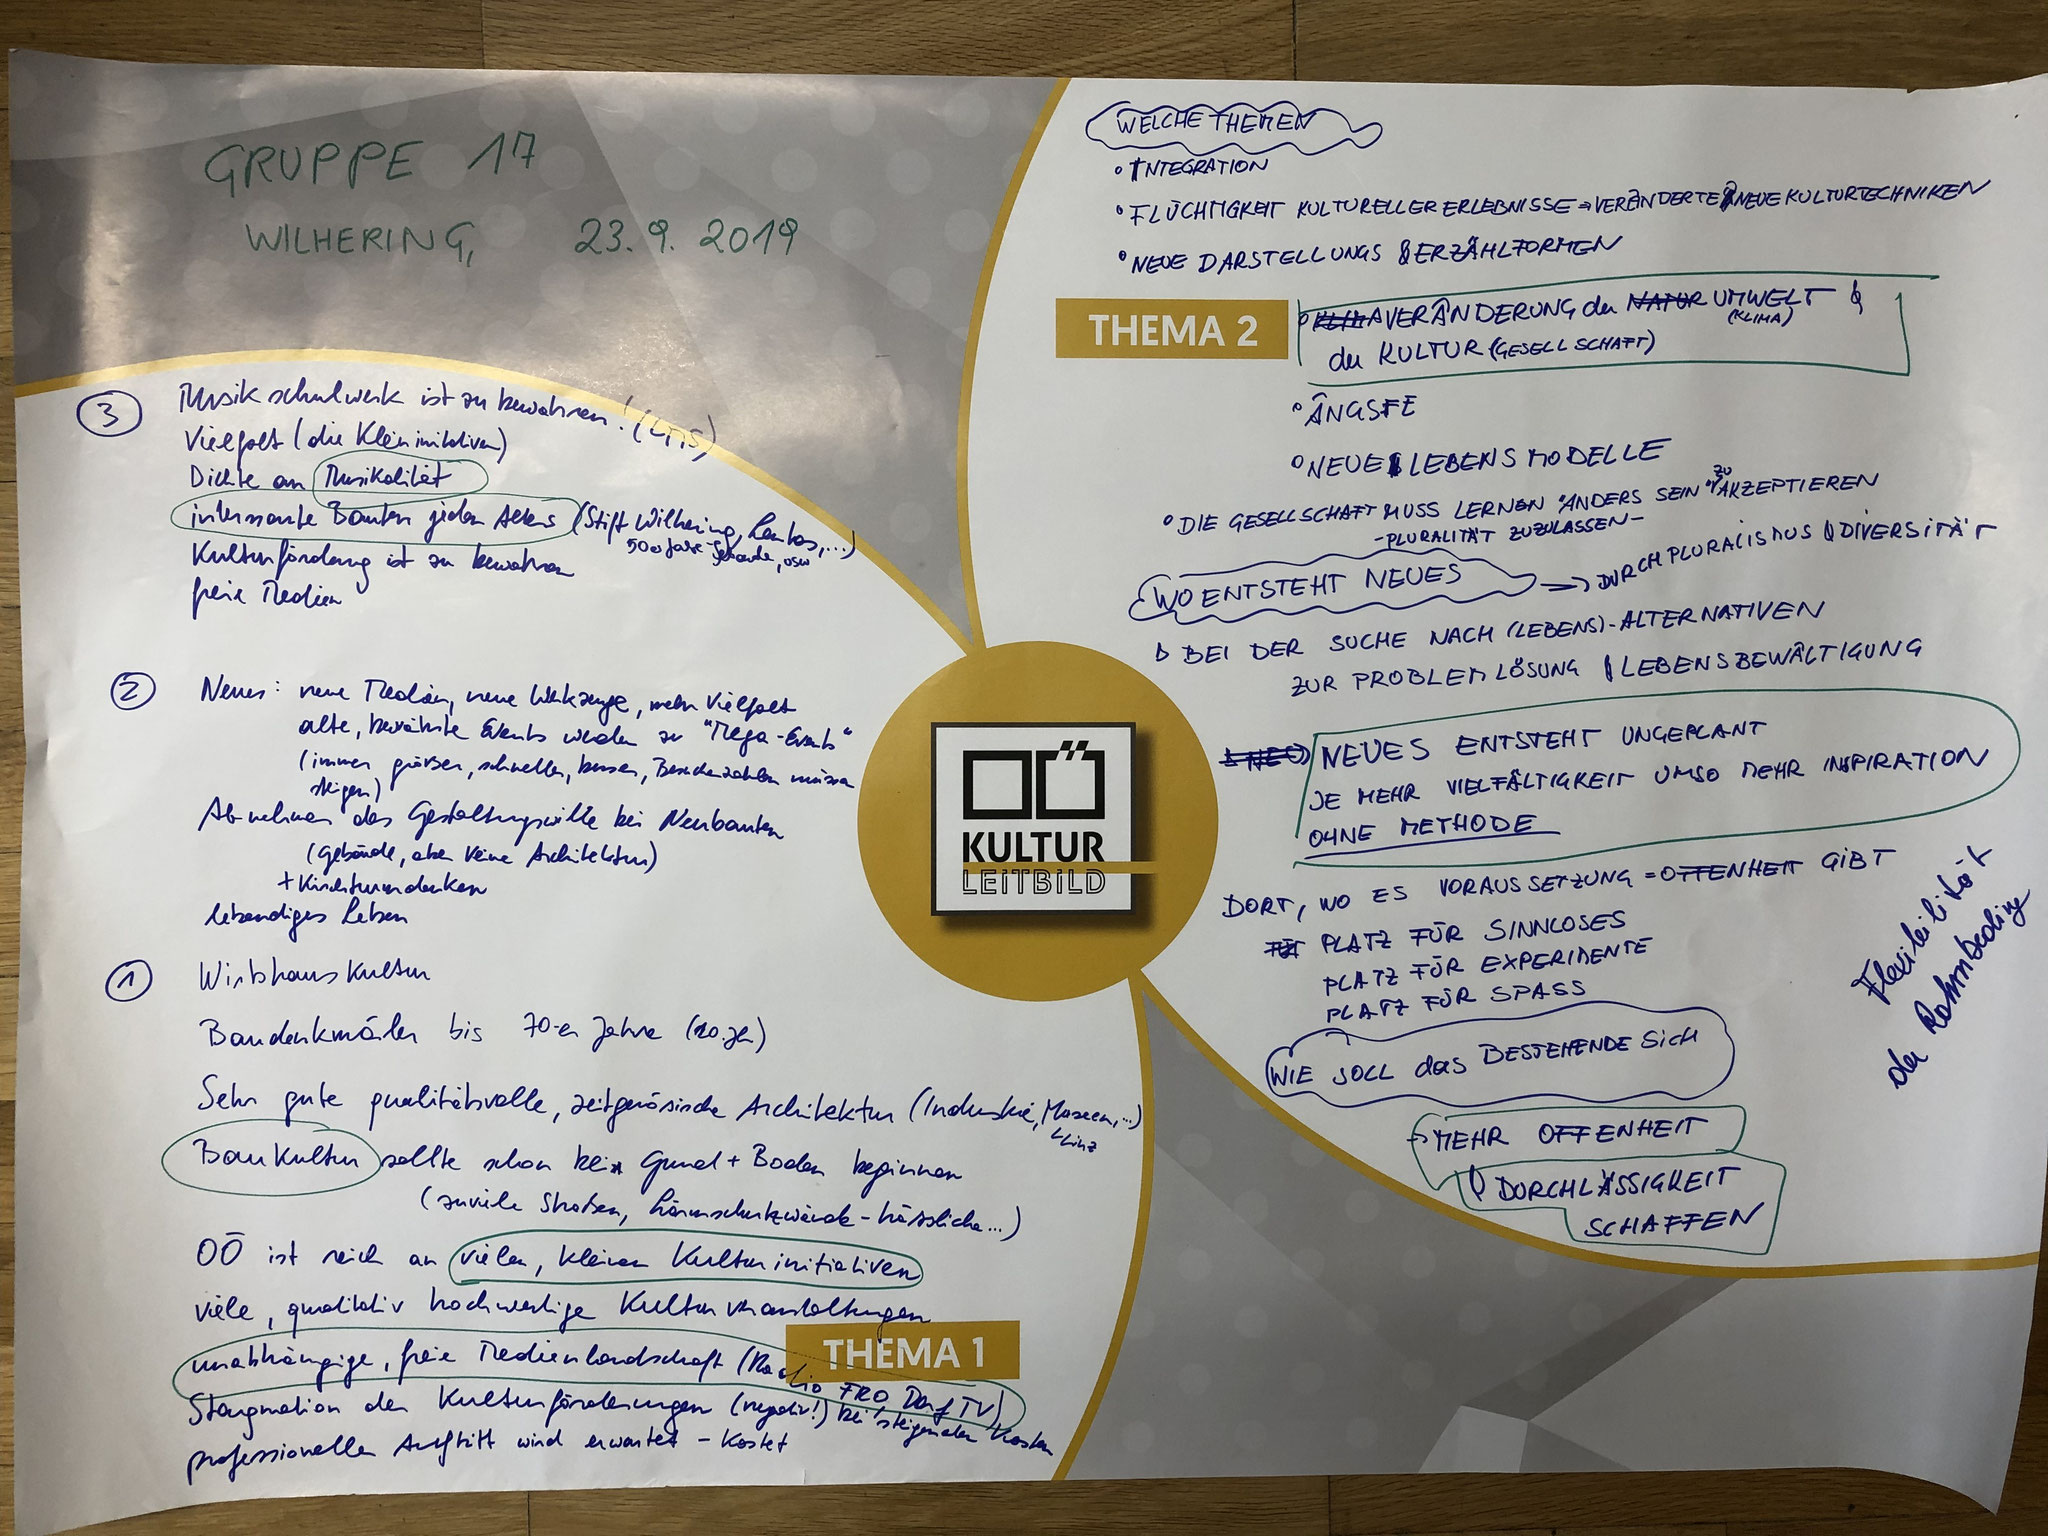 GRUPPE 17
WILHERING, 23.9.2019
③ Musikschulwerk ist zu bewahren! (LMS)
Vielfalt (die Kleininitiativen)
Dichte an Musikalität
interessante Bauten jeden Alters (Stift Wilhering, Lentos, ...)
500 Jahre-Gebäude, usw
Kulturförderung ist zu bewahren
freie Medien
② Neues: neue Medien, neue Werkzeuge, mehr Vielfalt
alte, bewährte Events werden zu "Mega-Events"
(immer größer, schneller, besser, Besucherzahlen müssen
steigen)
Abnehmen des Gestaltungswille bei Neubauten
(Gebäude, aber keine Architektur)
+ Kirchturmdenken
lebendiges Leben
① Wirtshauskultur
Baudenkmäler bis 70-er Jahre (20. Jh)
Sehr gute qualitätsvolle, zeitgenösische Architektur (Industrie, Museen, ...)
Linz
Baukultur sollte schon bei Grund + Boden beginnen
(zuviele Straßen, Lärmschutzwände - hässliche...)
OÖ ist reich an vielen, kleinen Kulturinitiativen
viele, qualitativ hochwertige Kulturveranstaltungen
unabhängige, freie Medienlandschaft (Radio FRO, Dorf TV)
Stagnation der Kulturförderungen (negativ!) bei steigenden Kosten
professioneller Auftritt wird erwartet - kostet
THEMA 1
OÖ
KULTUR
LEiTBiLD
WELCHE THEMEN
° INTEGRATION
° FLÜCHTIGKEIT KULTURELLER ERLEBNISSE → VERÄNDERTE & NEUE KULTURTECHNIKEN
° NEUE DARSTELLUNGS & ERZÄHLFORMEN
THEMA 2
° KLIMAVERÄNDERUNG der NATUR UMWELT &
(KLIMA)
der KULTUR (GESELLSCHAFT)
° ÄNGSTE
° NEUE LEBENSMODELLE
° DIE GESELLSCHAFT MUSS LERNEN "ANDERS SEIN" ZU AKZEPTIEREN
- PLURALITÄT ZUZULASSEN -
WO ENTSTEHT NEUES → DURCH PLURALISMUS & DIVERSITÄT
▷ BEI DER SUCHE NACH (LEBENS)-ALTERNATIVEN
ZUR PROBLEMLÖSUNG & LEBENSBEWÄLTIGUNG
NEUES ENTSTEHT UNGEPLANT
JE MEHR VIELFÄLTIGKEIT UMSO MEHR INSPIRATION
OHNE METHODE
DORT, WO ES VORAUSSETZUNG = OFFENHEIT GIBT
PLATZ FÜR SINNLOSES
PLATZ FÜR EXPERIMENTE
PLATZ FÜR SPASS
Flexibilität
der Rahmbeding
WIE SOLL das BESTEHENDE SICH
→ MEHR OFFENHEIT
& DURCHLÄSSIGKEIT
SCHAFFEN